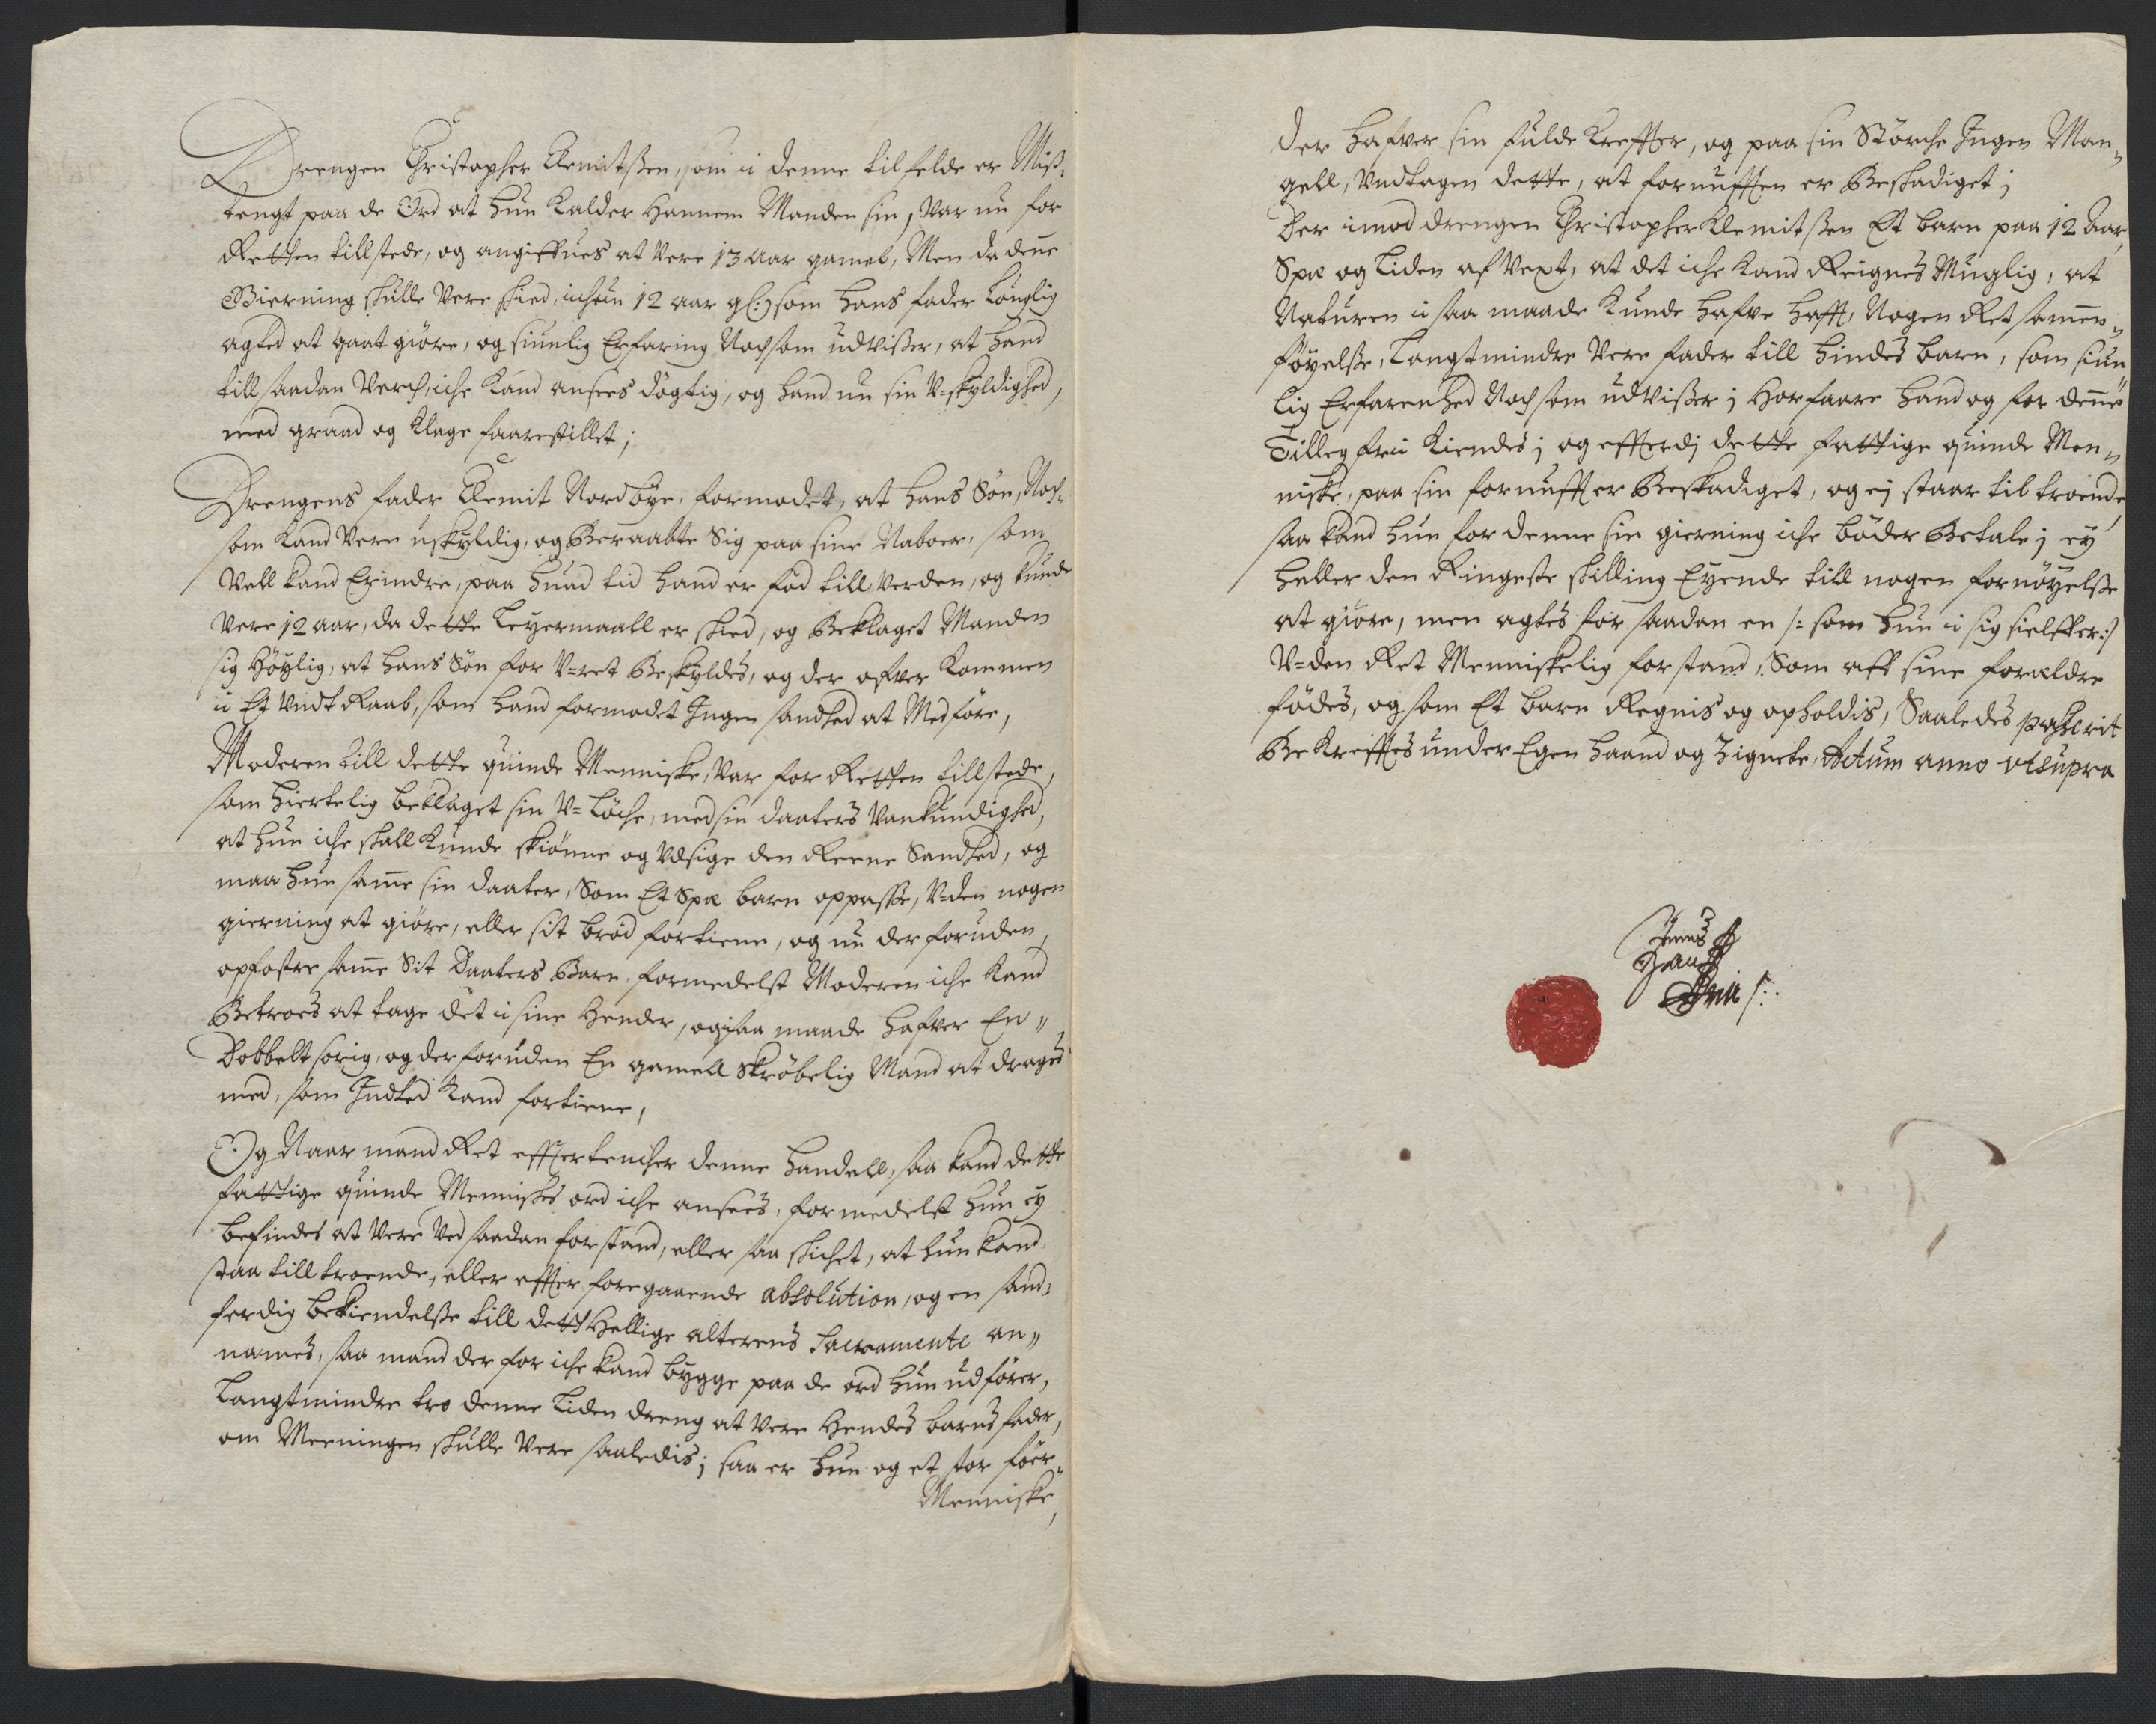 Drengen Christopher Clemitsßen, som i denne tilfelde er Miß-
tengt paa de Ord at hun Kalder Hannem Manden sin, var nu for
Retten tillstede, og angiffues at Vere 13 Aar gamel, Men da denne
Gierning skulle Vere skied, ichun 12 aar gl:) som hans fader Louglig
agted at gaat giöre, og siunlig Erfaring Noch som udvißer, at hand
till saadan Verch, iche Kand ansees dögtig, og hand nu sin V-skyldighed,
med graad og Klage faarestillet;
Drengens fader Clemit Nordbye, formodet, at hans Sön, Noch-
som kand Vere uskyldig, og Beraabte Sig paa sine Naboer, som
Vell kand Erindre, paa huad tid hand er fød till Verden, og kunde
Vere 12 aar, da dette Leyermaall er skied, og Beklaget Manden
sig Höylig, at hans Sön for V-ret Beskyldes, og der ofver Kommen
i Et Vndt Raab, som hand formodet Ingen sandhed at Medföre,
Moderen till dette quinde Menniske, Var for Retten tillstede,
som hiertelig beklaget sin V-Löche, med sin daaters Vankundighed,
at hun iche skall Kunde skiönne og Vdsige den Reene Sandhed, og
maa hun samme sin daater, Som Et Spæ barn oppasse, V-den nogen
gierning at giöre, eller sit bröd fortiene, og nu der foruden,
opfostre samme Sit Daaters Barn, formedelst Moderen iche Kand
Betroes at tage det i sine Hender, og i saa maade hafver En
Dobbelt sorig, og der foruden En gamell Skröbelig Mand at drages
med, som Indted Kand fortiene,
Og Naar mand Ret effterdencher denne handell, saa kand dette
fattige quinde Menniskes ord iche ansees, formedelst hun ey
befindes at Vere Ved saadan forstand, eller saa skichet, at hun kand
staa till troende, eller effter foregaaende absolution, og en sand-
ferdig bekiendelße till dett Hellige alterens Sacramente an-
names, saa mand der for iche kand bygge paa de ord hun udförer,
Langt mindre tro denne Liden dreng at Vere Hendes barns fader,
om Meeningen skulle Vere saaledis; saa er hun og et stor för
Menniske,
der hafver sin fulde Kreffter, og paa sin Störche Ingen Man-
gell, Vndtagen dette, at fornufften er Beskadiget;
Der imod drengen Christopher Clemitsßen Et barn paa 12 Aar
Spæ og Liden af Vext, at det iche Kand Reignes Muglig, at
Naturen i saa maade Kunde hafve hafft Nogen Ret sammen-
föyelße, Langt mindre Vere fader till hindes barn, som siun
lig Erfarenhed Noch som udvißer; Horfaare hand og for denne
Tilleg frii Kiendes; og efftterdj dette fattige quinde Men-
niske, paa sin fornufft er Beskadiget, og ej staar til troende
saa kand hun for denne sin gierning iche böder Betale; ey
heller den Ringeste skilling Eyende till nogen fornöyelße
at giöre, men agtes for saadan en /: som hun i sig sielffer:/
V-den Ret Menniskelig forstand, Som aff sine forældre
födes, og som Et barn Regnis og opholdis, Saaledes passerit
Bekrefftes under Egen haand og Zignete, Actum anno utsupra